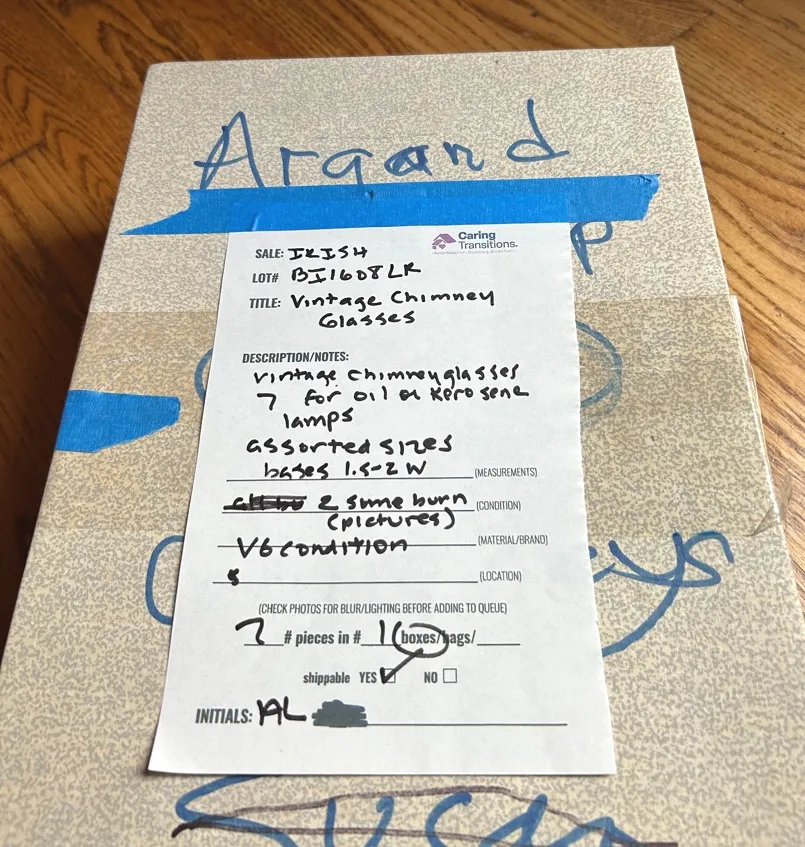 Argand
P
Caring
Transitions.
SALE: IRISH
LOT# BI1608LR
TITLE: Vintage Chimney
Glasses
DESCRIPTION/NOTES:
vintage chimneyglasses
7 for oil or Kerosene
lamps
assorted sizes
bases 1.5-2 W (MEASUREMENTS)
2 some burn (CONDITION)
(pictures)
VG condition (MATERIAL/BRAND)
8 (LOCATION)
(CHECK PHOTOS FOR BLUR/LIGHTING BEFORE ADDING TO QUEUE)
7 # pieces in # 1 boxes/bags/
shippable YES NO
INITIALS: AL